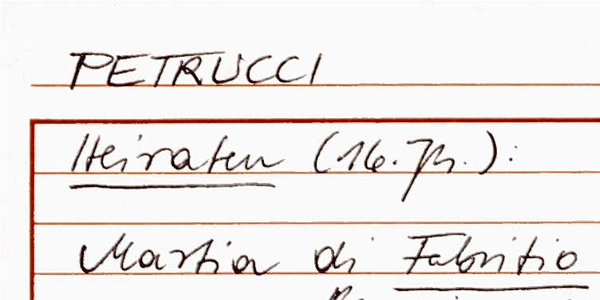 PETRUCCI
Heiraten (16. Jh.):
Martia di Fabritio